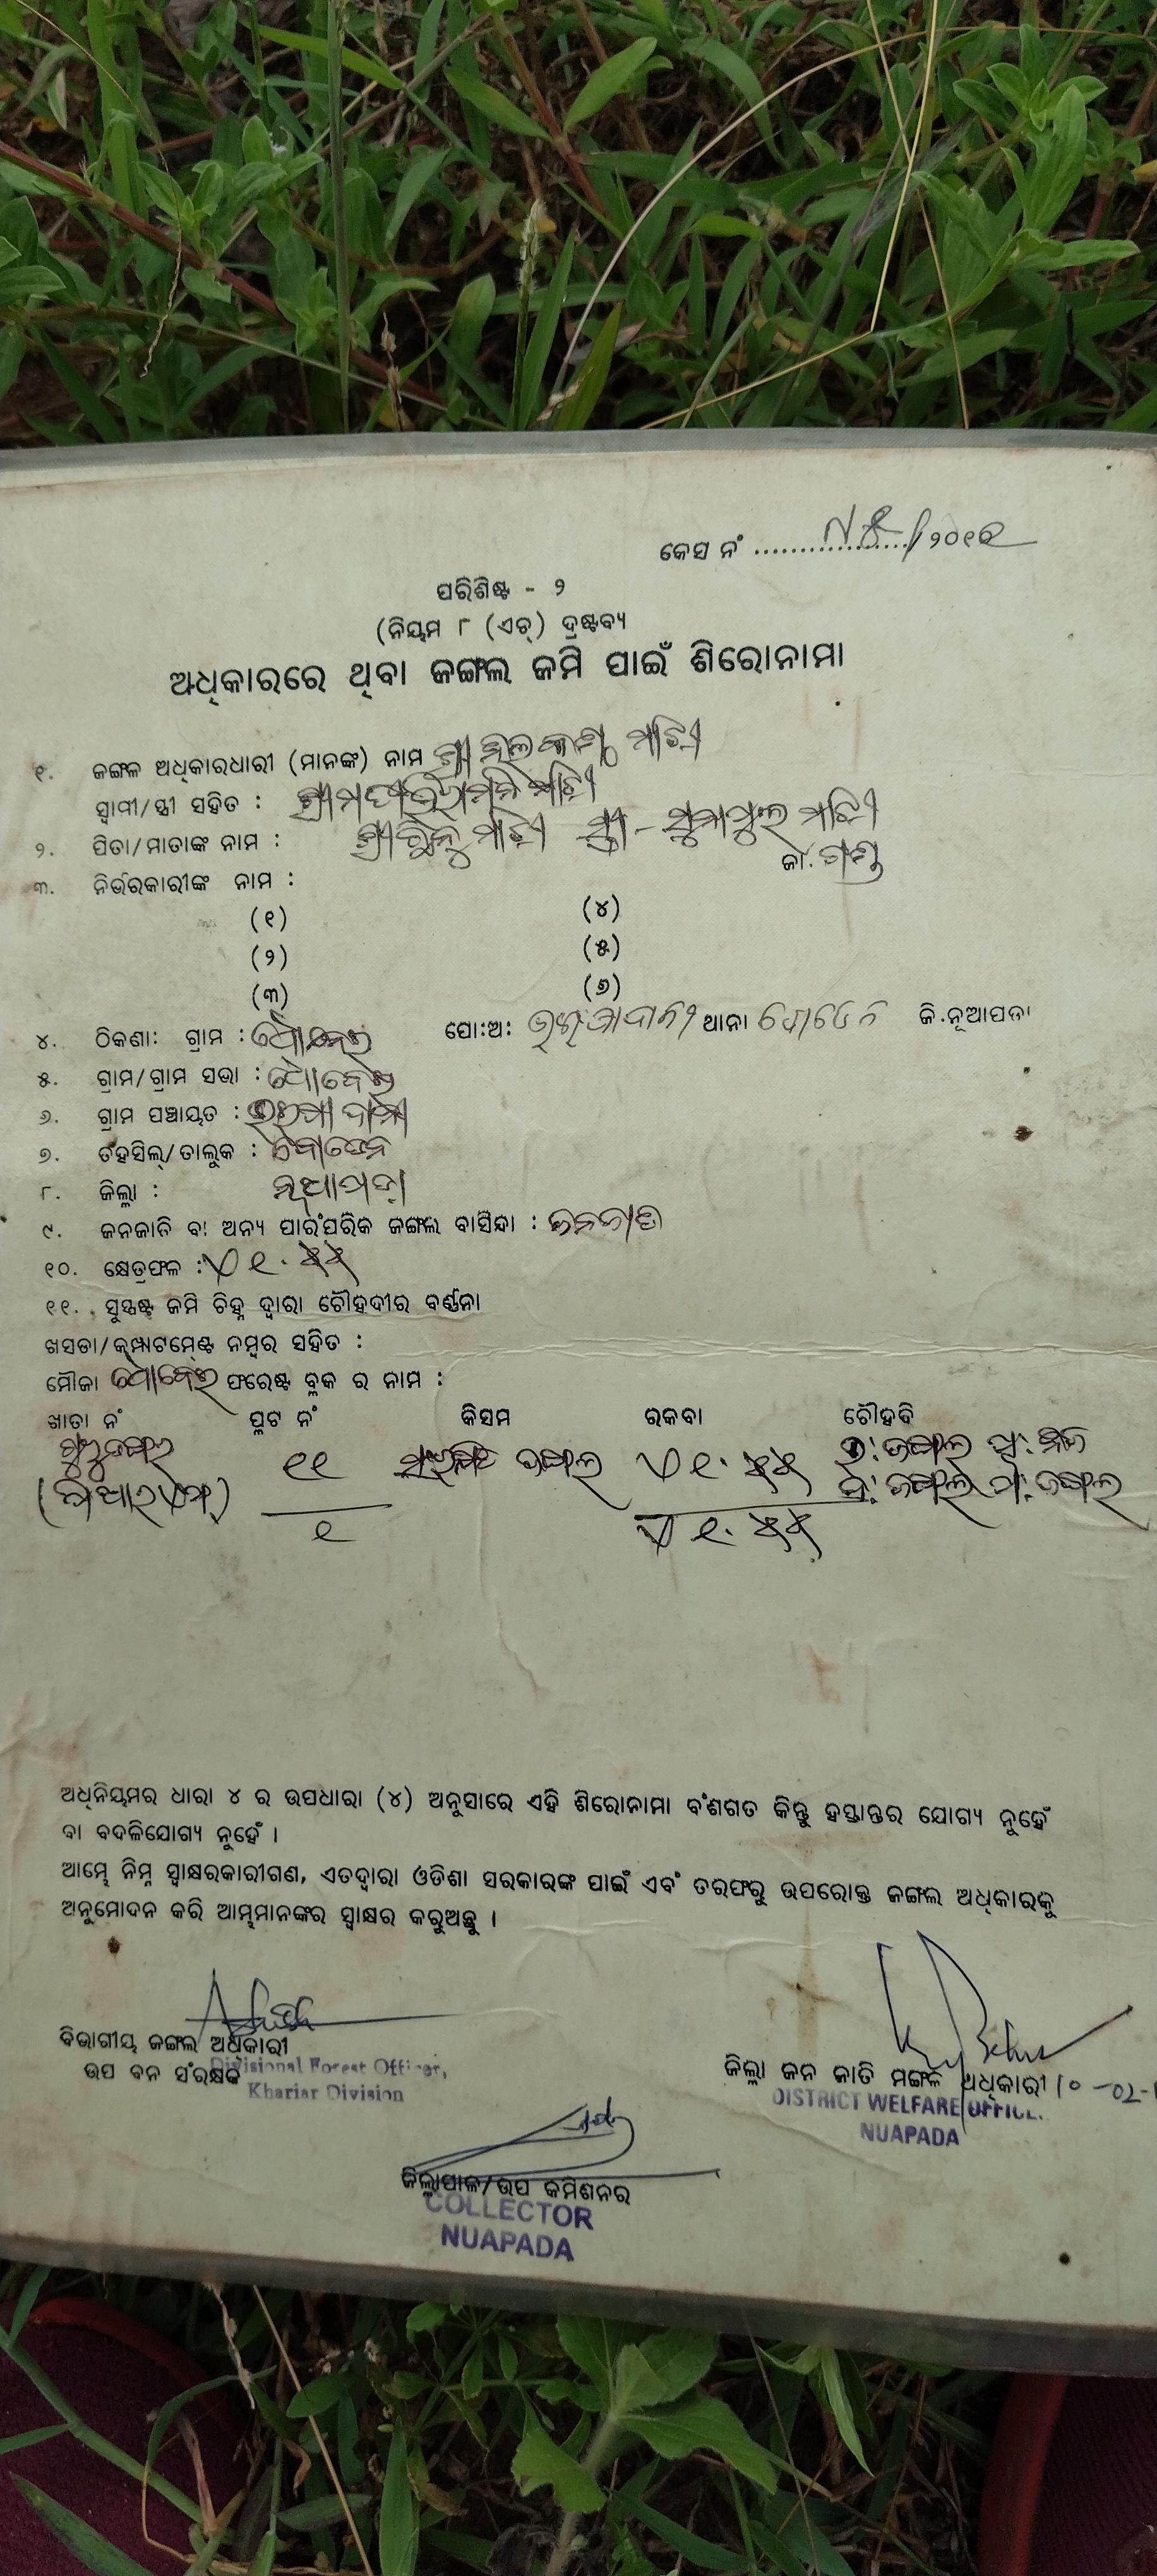 କେସ ନଂ ................../୨୦୧୧
ପରିଶିଷ୍ଟ - ୨
(ନିୟମ ୮ (ଏଚ୍) ଦ୍ରଷ୍ଟବ୍ୟ
ଅଧିକାରରେ ଥିବା ଜଙ୍ଗଲ ଜମି ପାଇଁ ଶିରୋନାମା
୧. ଜଙ୍ଗଳ ଅଧିକାରଧାରୀ (ମାନଙ୍କ) ନାମ ଶ୍ରୀ ମାଝୀ
ସ୍ୱାମୀ/ସ୍ତ୍ରୀ ସହିତ :
୨. ପିତା/ମାତାଙ୍କ ନାମ : ମାଝୀ ସ୍ତ୍ରୀ - ମାଝୀ
ଜା. ଗଣ୍ଡ
୩. ନିର୍ଭରକାରୀଙ୍କ ନାମ :
(୧) (୪)
(୨) (୫)
(୩) (୬)
୪. ଠିକଣା: ଗ୍ରାମ : ପୋ:ଅ: ଥାନା ବୋଡେନ ଜି.ନୂଆପଡା
୫. ଗ୍ରାମ/ଗ୍ରାମ ସଭା :
୬. ଗ୍ରାମ ପଞ୍ଚାୟତ :
୭. ତହସିଲ୍/ତାଲୁକ : ବୋଡେନ
୮. ଜିଲ୍ଲା : ନୂଆପଡ଼ା
୯. ଜନଜାତି ବା ଅନ୍ୟ ପାରଂପରିକ ଜଙ୍ଗଲ ବାସିନ୍ଦା : ଜନଜାତି
୧୦. କ୍ଷେତ୍ରଫଳ : ଏ ୧.୫୫
୧୧. ସୁସ୍ପଷ୍ଟ ଜମି ଚିହ୍ନ ଦ୍ୱାରା ଚୌହଦୀର ବର୍ଣ୍ଣନା
ଖସଡା/କମ୍ପାଟମେଣ୍ଟ ନମ୍ବର ସହିତ :
ମୌଜା ଫରେଷ୍ଟ ବ୍ଳକ ର ନାମ :
ଖାତା ନଂ ପ୍ଲଟ ନଂ କିସମ ରକବା ଚୌହଦି
୧୧ ଜଙ୍ଗଲ ଏ ୧.୫୫ ଉ: ଜଙ୍ଗଲ ପୂ:
ଦ: ଜଙ୍ଗଲ ପ: ଜଙ୍ଗଲ
୧ ଏ ୧.୫୫
ଅଧିନିୟମର ଧାରା ୪ ର ଉପଧାରା (୪) ଅନୁସାରେ ଏହି ଶିରୋନାମା ବଂଶଗତ କିନ୍ତୁ ହସ୍ତାନ୍ତର ଯୋଗ୍ୟ ନୁହେଁ
ବା ବଦଳିଯୋଗ୍ୟ ନୁହେଁ ।
ଆମ୍ଭେ ନିମ୍ନ ସ୍ୱାକ୍ଷରକାରୀଗଣ, ଏତଦ୍ୱାରା ଓଡିଶା ସରକାରଙ୍କ ପାଇଁ ଏବଂ ତରଫରୁ ଉପରୋକ୍ତ ଜଙ୍ଗଲ ଅଧିକାରକୁ
ଅନୁମୋଦନ କରି ଆମ୍ଭମାନଙ୍କର ସ୍ୱାକ୍ଷର କରୁଅଛୁ ।
ବିଭାଗୀୟ ଜଙ୍ଗଲ ଅଧିକାରୀ
ଉପ ବନ ସଂରକ୍ଷକ
Divisional Forest Officer,
Khariar Division
ଜିଲ୍ଲା ଜନ ଜାତି ମଙ୍ଗଳ ଅଧିକାରୀ
DISTRICT WELFARE OFFICE.
NUAPADA
ଜିଲ୍ଲାପାଳ/ଉପ କମିଶନର
COLLECTOR
NUAPADA